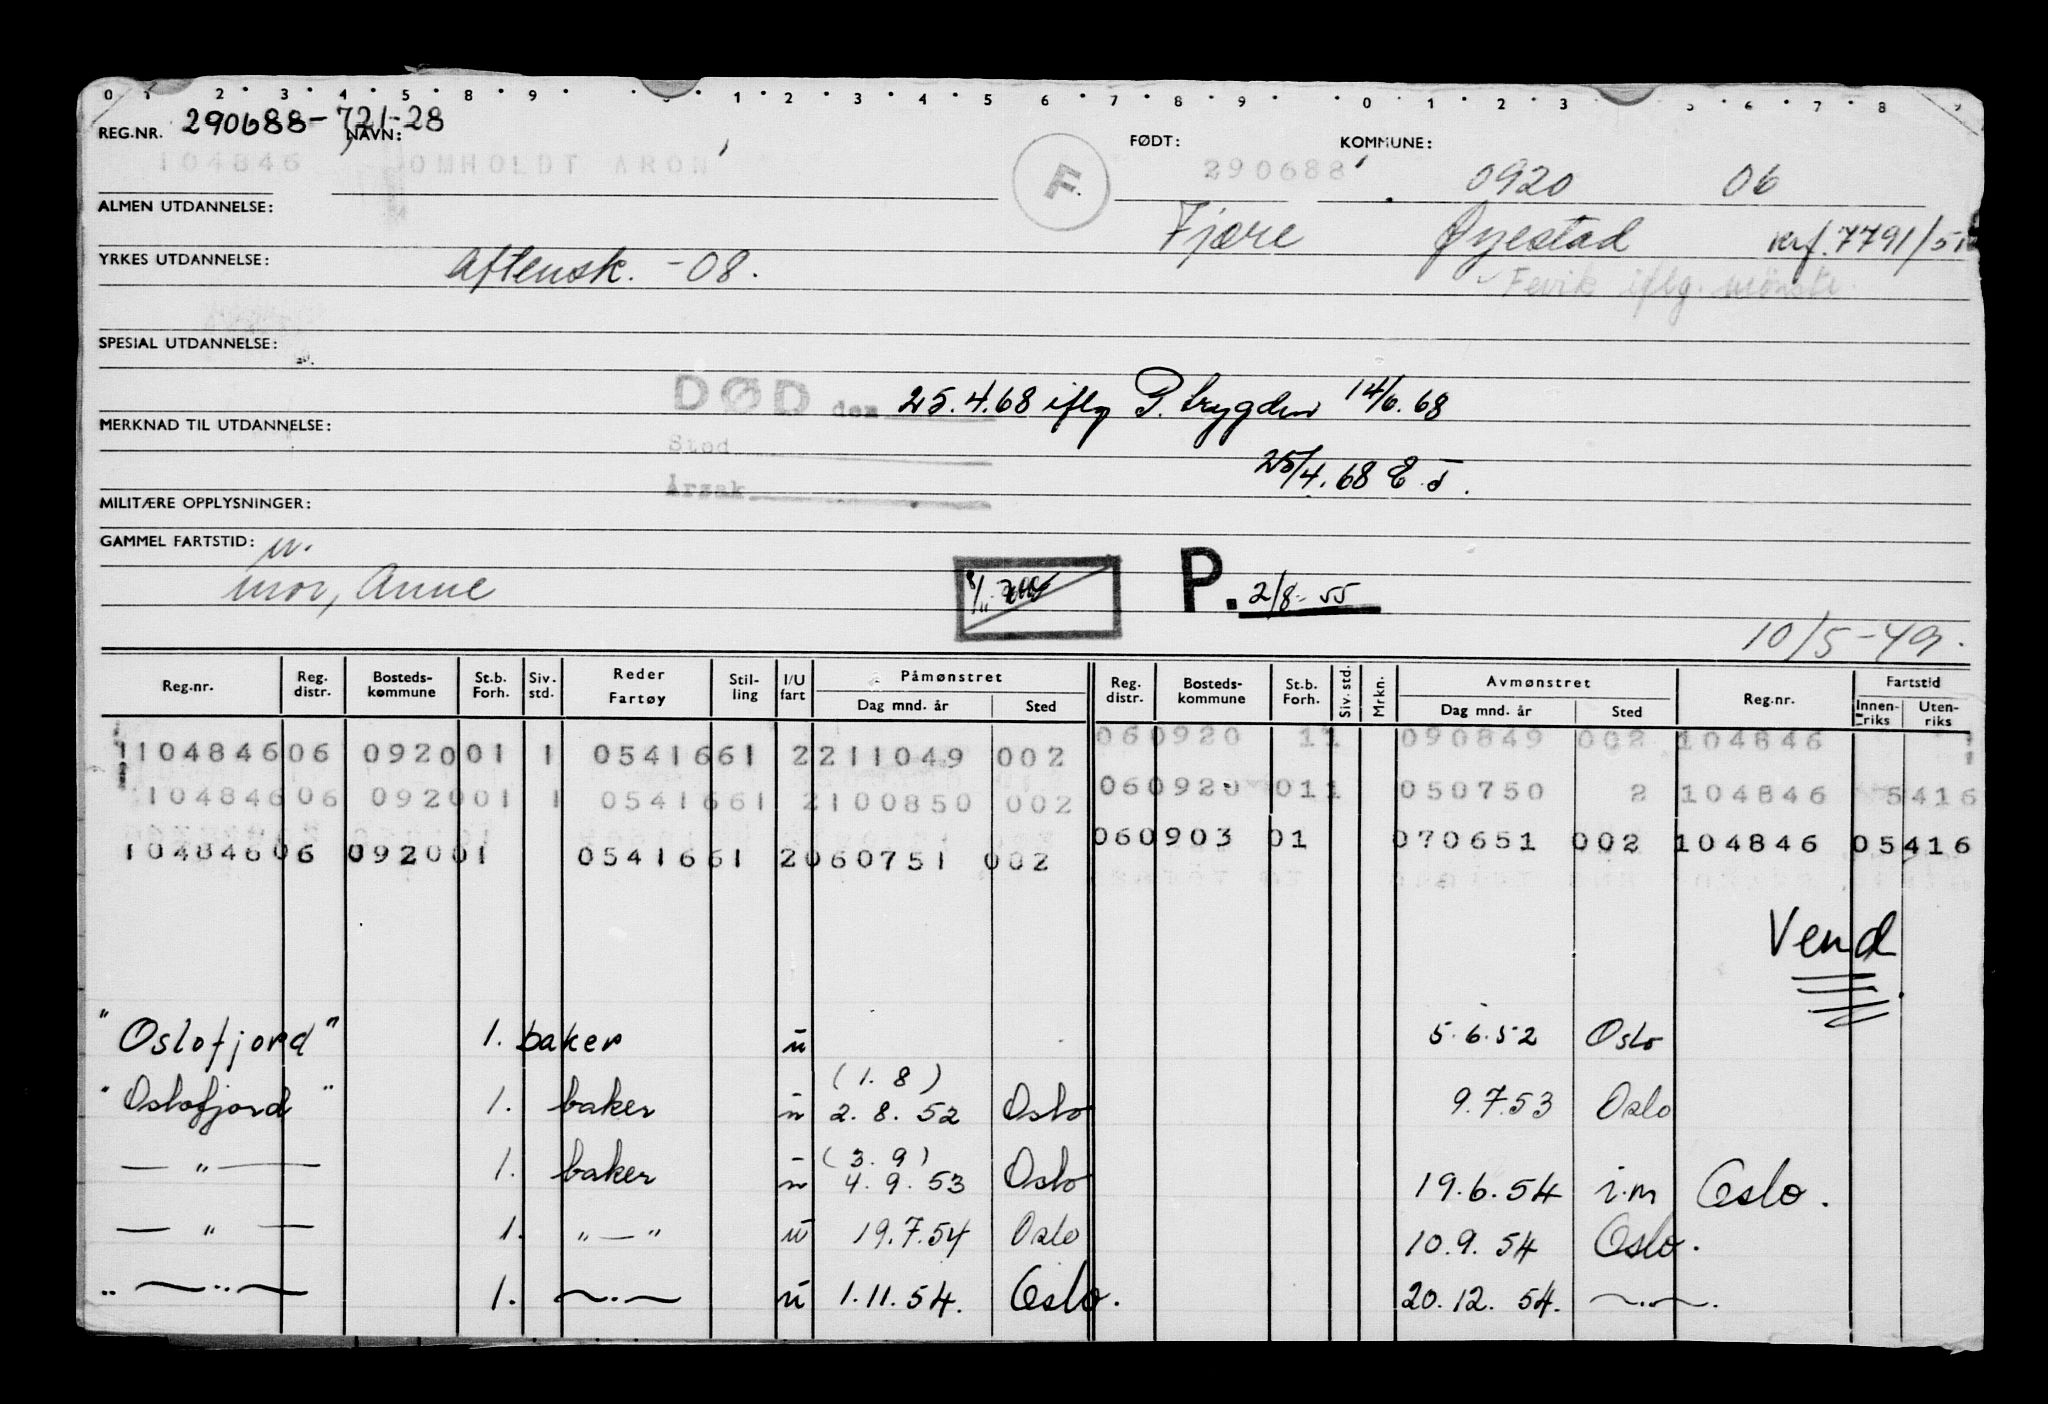 0 1 2 3 4 5 8 9 1 2 3 4 5 6 7 8 9 0 1 2 3 5 6 7 8
REG.NR. 290688-721-28 NAVN: FØDT: KOMMUNE:
104846 OMHOLDT ARON F. 290688 0920 06
ALMEN UTDANNELSE: Fjære Øyestad krf. 7791/51
YRKES UTDANNELSE: Aftensk. -08. Fevik iflg. mønstr.
SPESIAL UTDANNELSE:
DØD den 25.4.68 iflg P. trygden 14/6.68
MERKNAD TIL UTDANNELSE:
Sted
25/4.68 E.J.
Årsak
MILITÆRE OPPLYSNINGER:
GAMMEL FARTSTID: u.
mor, Anne
P. 2/8-55
10/5-49.
Reg.nr. Reg. distr. Bosteds-kommune St.b. Forh. Siv. std. Reder Fartøy Stil-ling I/U fart Påmønstret Dag mnd. år Sted Reg. distr. Bosteds-kommune St.b. Forh. Siv. std. Mrkn. Avmønstret Dag mnd. år Sted Reg.nr. Fartstid Innen-riks Uten-riks
060920 11 090849 002 104846
104846 06 0920 01 1 0541661 2 211049 002
060920 011 050750 2 104846 5416
104846 06 0920 01 1 0541661 2 100850 002
060903 01 070651 002 104846 05416
104846 06 0920 01 0541661 2 060751 002
Vend
"Oslofjord" 1. baker u 5.6.52 Oslo
(1.8)
"Oslofjord" 1. baker u 2.8.52 Oslo 9.7.53 Oslo
(3.9)
— " — 1. baker u 4.9.53 Oslo 19.6.54 i.m Oslo.
— " — 1. "—" u 19.7.54 Oslo 10.9.54 Oslo.
.. — .. — 1. —.— u 1.11.54. Oslo. 20.12.54. —..—.